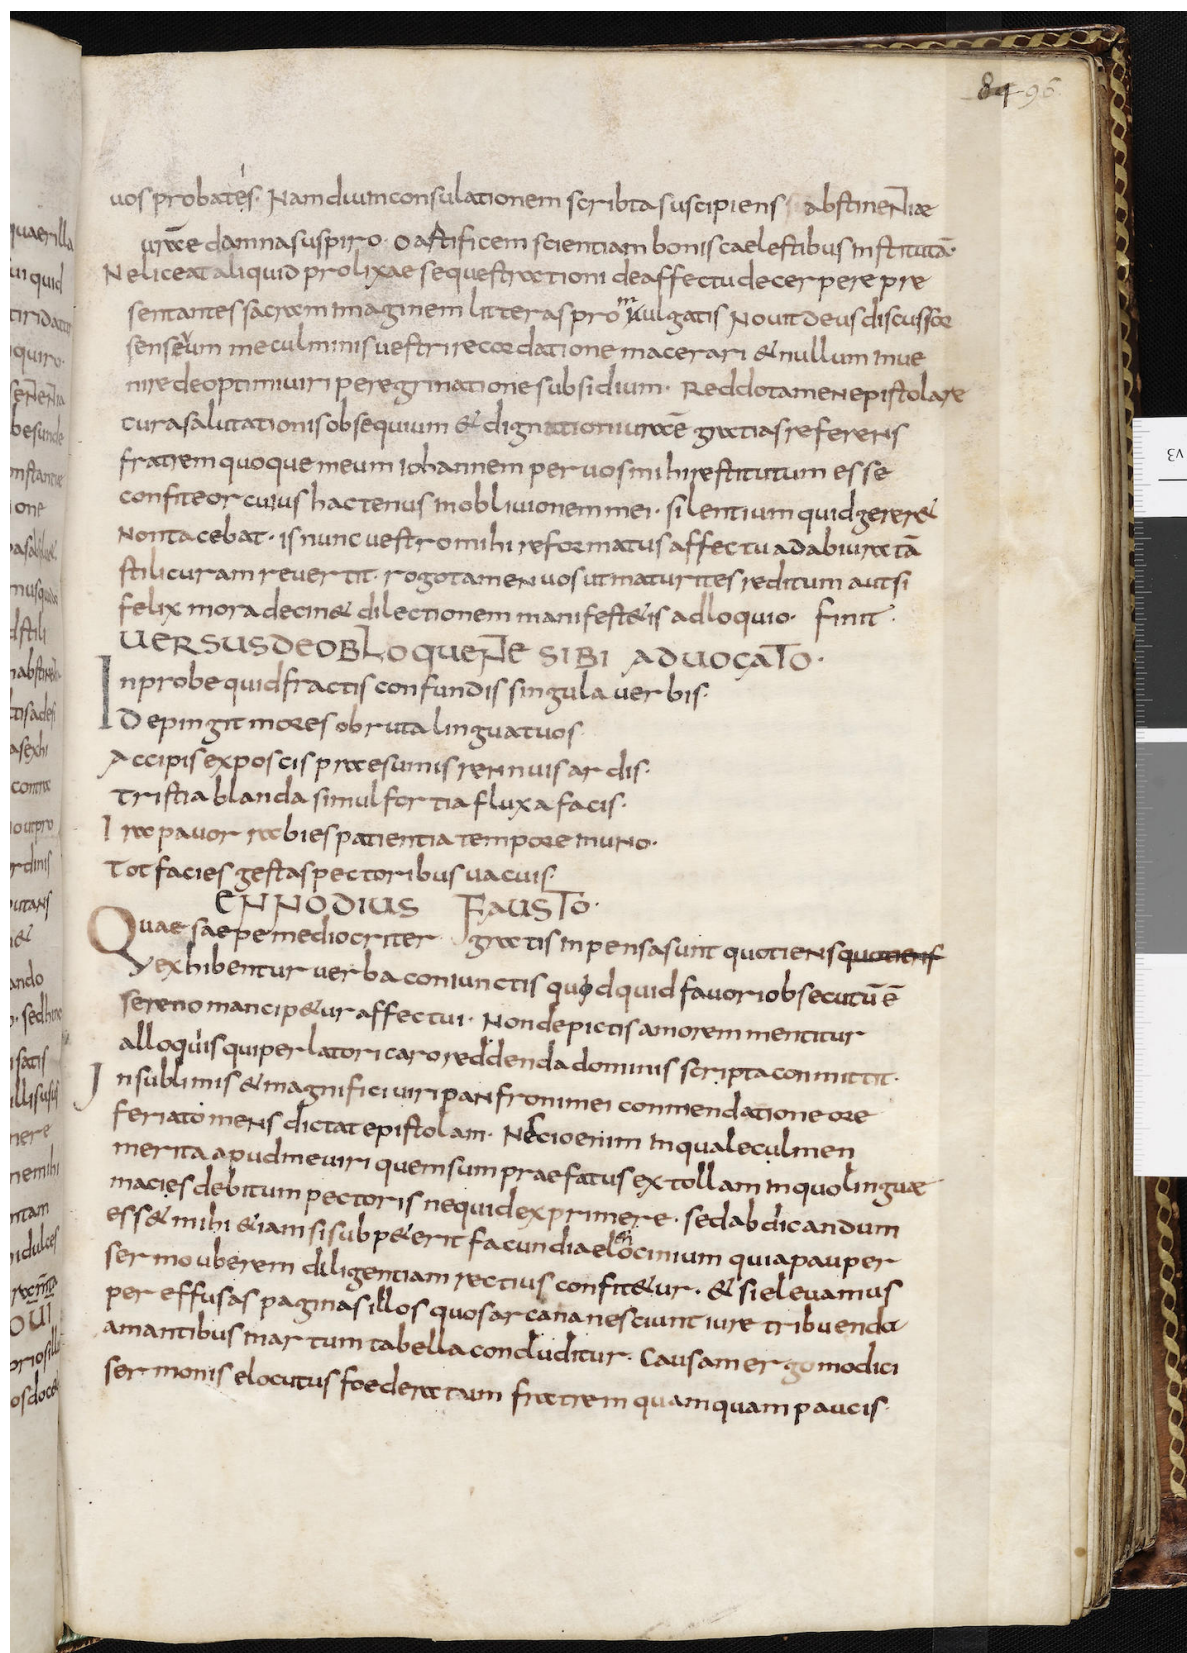 84 96
uos probateis. Nam dum consulationem scribta suscipiens abstinentiae
uræ damna suspiro. O artificem scientiam bonis caelestibus institutā.
Ne liceat aliquid prolixae sequestrationi de affectu decerpere pre
sentantes sacram imaginem litteras promulgatis Nouit deus discussor
senseum me culminis uestri recordatione macerari & nullum inue
nire de optimi uiri peregrinatione subsidium. Reddo tamen epistolare
cura salutationis obsequium & dignationi uræ gratias referens
fratrem quoque meum iohannem per uos mihi restitutum esse
confiteor cuius hactenus in obliuionem mei. silentium quid gerer&
Non tacebat. is nunc uestro mihi reformatus affectu ad abiuratā
stili curam reuertit. rogo tamen uos ut maturites reditum aut si
felix mora decin& dilectionem manifest&is adloquio. finit.
UERSUS DE OBLOQUENTE SIBI ADVOCATO.
Inprobe quid fractis confundis singula uerbis.
Depingit mores obruta lingua tuos
Accipis exposcis præsumis rennuis ardis.
Tristia blanda simul fortia fluxa facis.
Ira pauor rabies patientia tempore in uno.
Tot facies gestas pectoribus uacuis.
ENNODIUS FAUSTO.
Quae saepe mediocriter gratis inpensa sunt quotiens quotiens
exhibentur uerba coniunctis quod quid fauori obsecutū ē
sereno mancip&ur affectui. Non depictis amorem mentitur
alloquiis qui perlatori caro reddenda dominis scripta conmittit.
In sublimis & magnifici uiri panfroni mei conmendatione ore
feriato mens dictat epistolam. Nescio enim in quale culmen
merita apud me uiri quem sum praefatus extollam in quo linguae
macies debitum pectoris nequid exprimere. sed abdicandum
ess& mihi &iam si subp&erit facundiae lenocinium quia pauper
sermo uberem diligentiam rectius confit&ur. & si eleuamus
per effusas paginas illos quos arcana nesciunt iure tribuenda
amantibus martum tabella concluditur. Causam ergo modici
sermonis elocutus foederatum fratrem quamquam paucis.